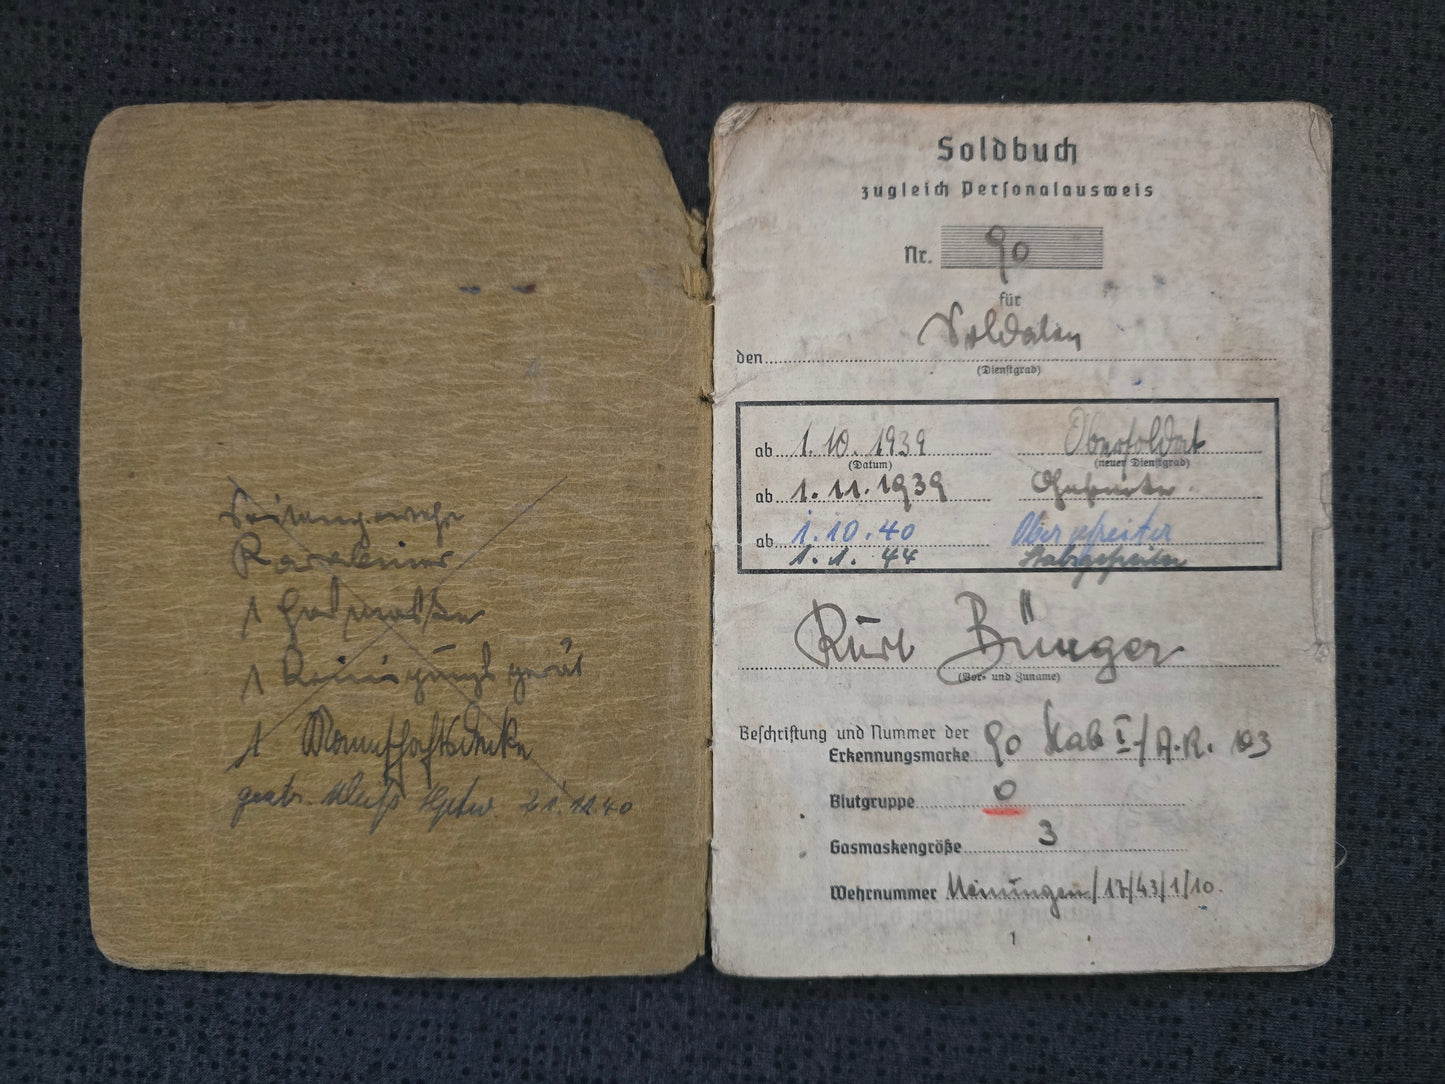 Seitengewehr
Karabiner
1 Gasmaske
1 Reinigungsgerät
1 Mannschaftsdecke
gestr. Hptw. 21.12.40
Soldbuch
zugleich Personalausweis
Nr. 90
für
den Soldaten
(Dienstgrad)
ab 1.10.1939 Obersoldat
(Datum) (neuer Dienstgrad)
ab 1.11.1939 Gefreiter
ab 1.10.40 Obergefreiter
1.1.44 Stabsgefreiter
Kurt Bünger
(Vor- und Zuname)
Beschriftung und Nummer der
Erkennungsmarke 90 Stab I/A.R. 103
Blutgruppe 0
Gasmaskengröße 3
Wehrnummer Meiningen/17/43/1/10.
1